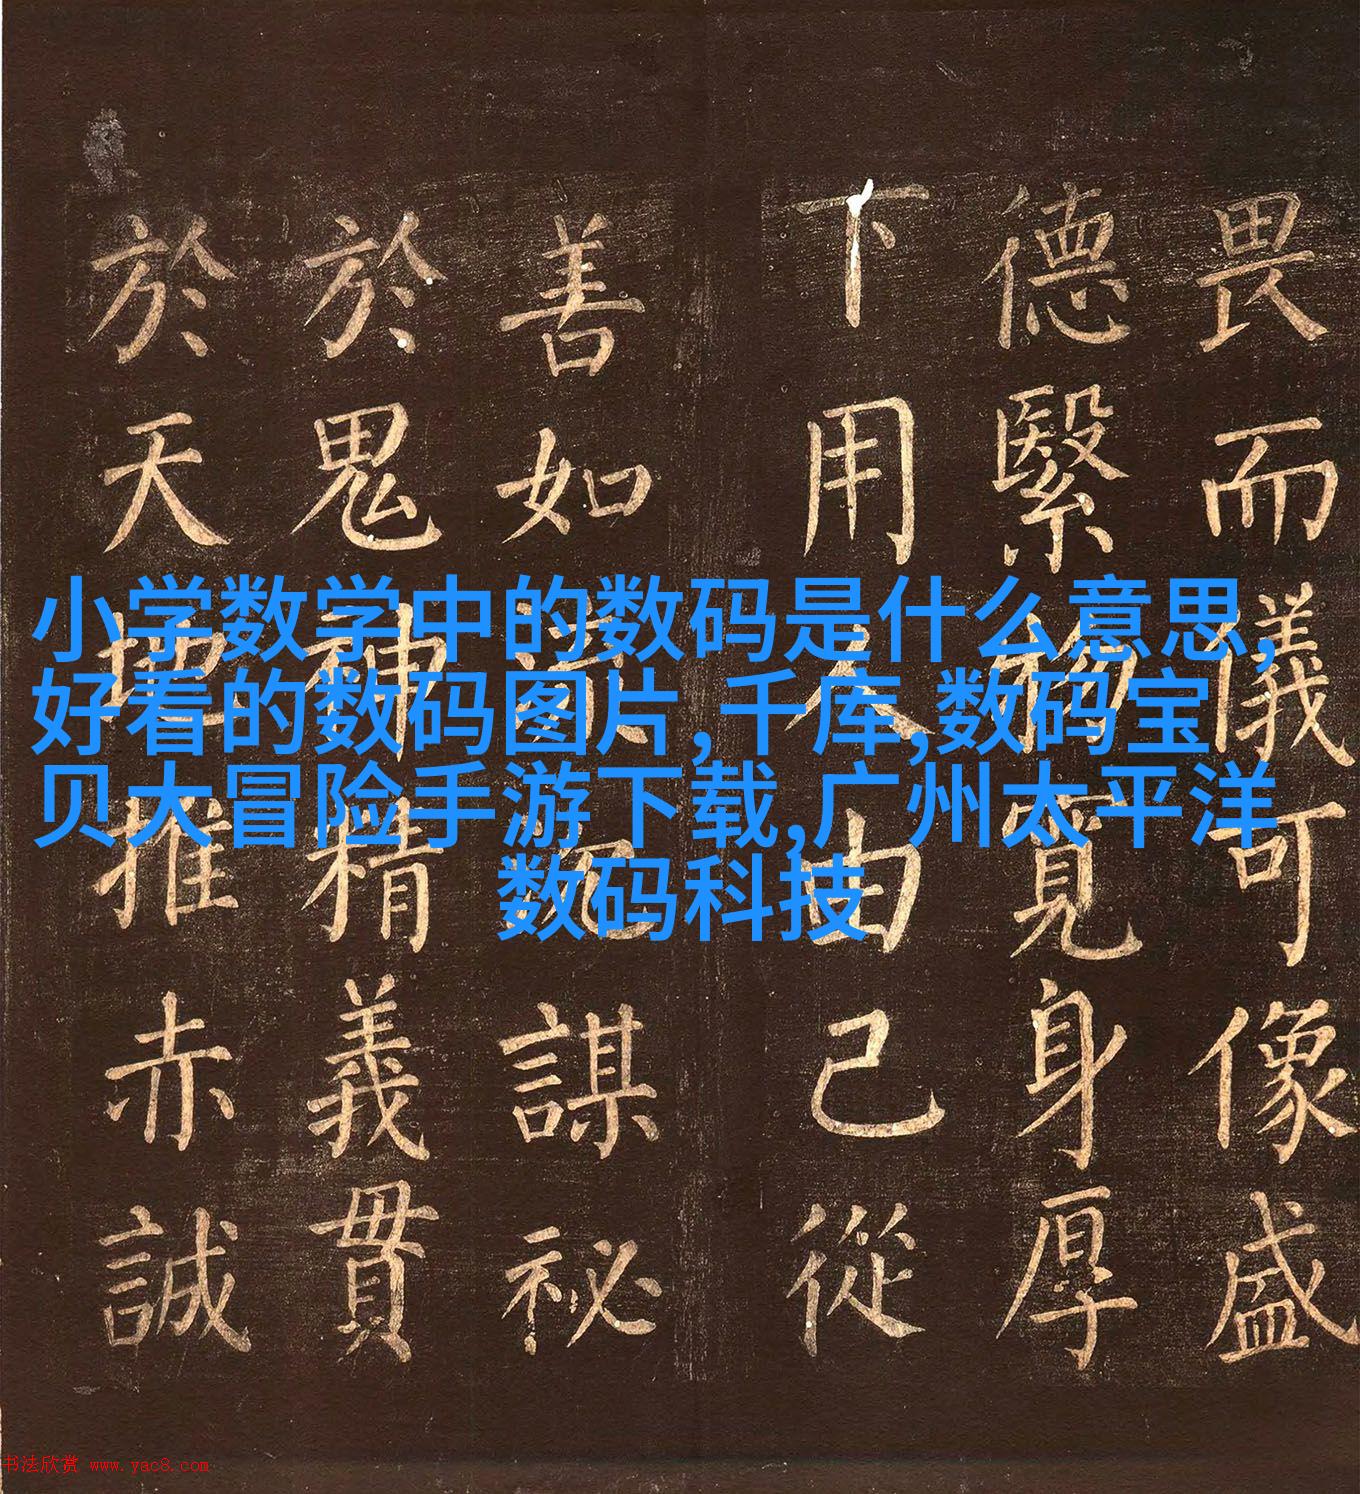 小学数学中的数码是什么意思,
好看的数码图片,千库,数码宝
贝大冒险手游下载,广州太平洋
数码科技
畏而儀可像盛
德繄物寬身厚
下用人由己從
善如流謀祕
於鬼神精義貫
於天地推赤誠
书法欣赏 www.yac8.com